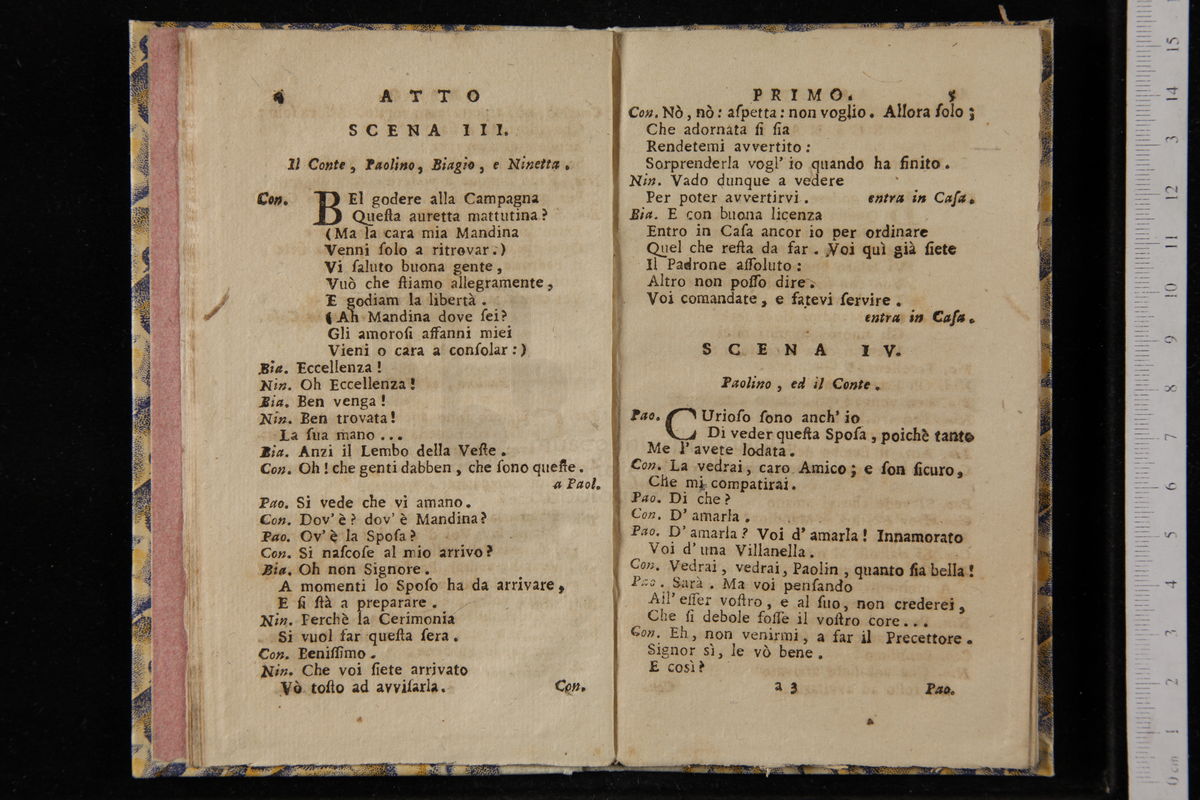 4 ATTO
SCENA III.
Il Conte, Paolino, Biagio, e Ninetta.
Con. BEl godere alla Campagna
Queſta auretta mattutina?
(Ma la cara mia Mandina
Venni ſolo a ritrovar.)
Vi ſaluto buona gente,
Vuò che ſtiamo allegramente,
E godiam la libertà.
(Ah Mandina dove ſei?
Gli amoroſi affanni miei
Vieni o cara a conſolar:)
Bia. Eccellenza!
Nin. Oh Eccellenza!
Bia. Ben venga!
Nin. Ben trovata!
La ſua mano...
Bia. Anzi il Lembo della Veſte.
Con. Oh! che genti dabben, che ſono queſte.
a Paol.
Pao. Si vede che vi amano.
Con. Dov'è? dov'è Mandina?
Pao. Ov'è la Spoſa?
Con. Si naſcoſe al mio arrivo?
Bia. Oh non Signore.
A momenti lo Spoſo ha da arrivare,
E ſi ſtà a preparare.
Nin. Perchè la Cerimonia
Si vuol far queſta ſera.
Con. Beniſſimo.
Nin. Che voi ſiete arrivato
Vò toſto ad avviſarla. Con.
PRIMO. 5
Con. Nò, nò: aſpetta: non voglio. Allora ſolo;
Che adornata ſi ſia
Rendetemi avvertito:
Sorprenderla vogl' io quando ha finito.
Nin. Vado dunque a vedere
Per poter avvertirvi. entra in Caſa.
Bia. E con buona licenza
Entro in Caſa ancor io per ordinare
Quel che reſta da far. Voi quì già ſiete
Il Padrone aſſoluto:
Altro non poſſo dire.
Voi comandate, e fatevi ſervire.
entra in Caſa.
SCENA IV.
Paolino, ed il Conte.
Pao. CUrioſo ſono anch' io
Di veder queſta Spoſa, poichè tanto
Me l'avete lodata.
Con. La vedrai, caro Amico; e ſon ſicuro,
Che mi compatirai.
Pao. Di che?
Con. D' amarla.
Pao. D'amarla? Voi d'amarla! Innamorato
Voi d'una Villanella.
Con. Vedrai, vedrai, Paolin, quanto ſia bella!
Pao. Sarà. Ma voi penſando
All'eſſer voſtro, e al ſuo, non crederei,
Che ſi debole foſſe il voſtro core...
Con. Eh, non venirmi, a far il Precettore.
Signor sì, le vò bene.
E così?
a 3 Pao.
0 cm 1 2 3 4 5 6 7 8 9 10 11 12 13 14 15